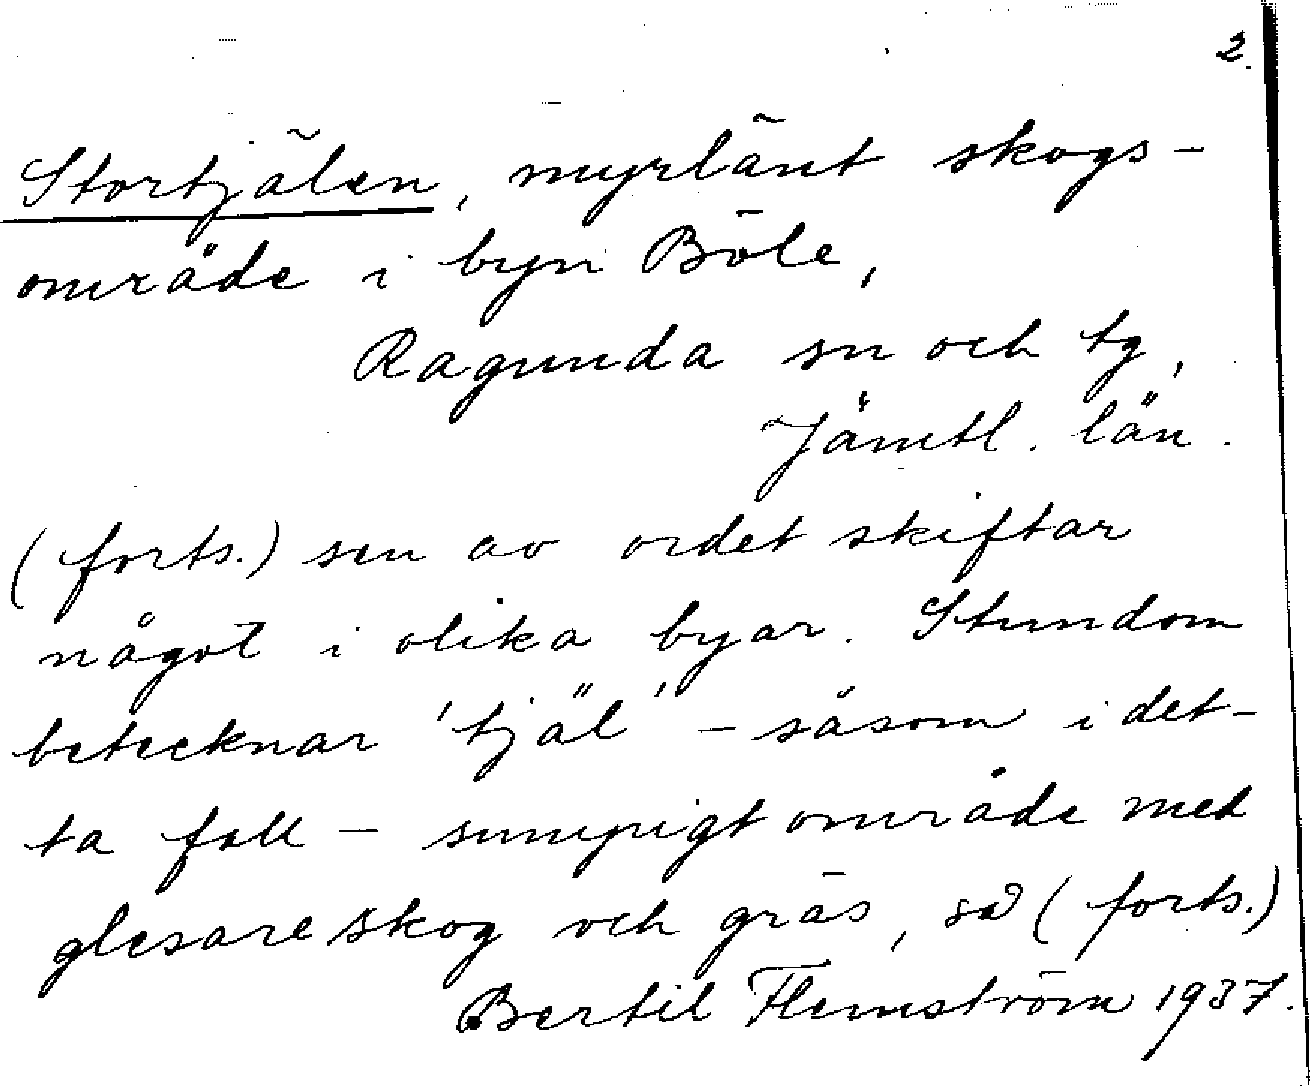 2.
Stortjälen, myrlänt skogs-
område i byn Böle,
Ragunda sn och tg,
Jämtl. län.
(forts.) sen av ordet skiftar
något i olika byar. Stundom
betecknar 'tjäl' - såsom i det-
ta fall - sumpigt område med
glesare skog och gräs, så (forts.)
Bertil Flemström 1937.